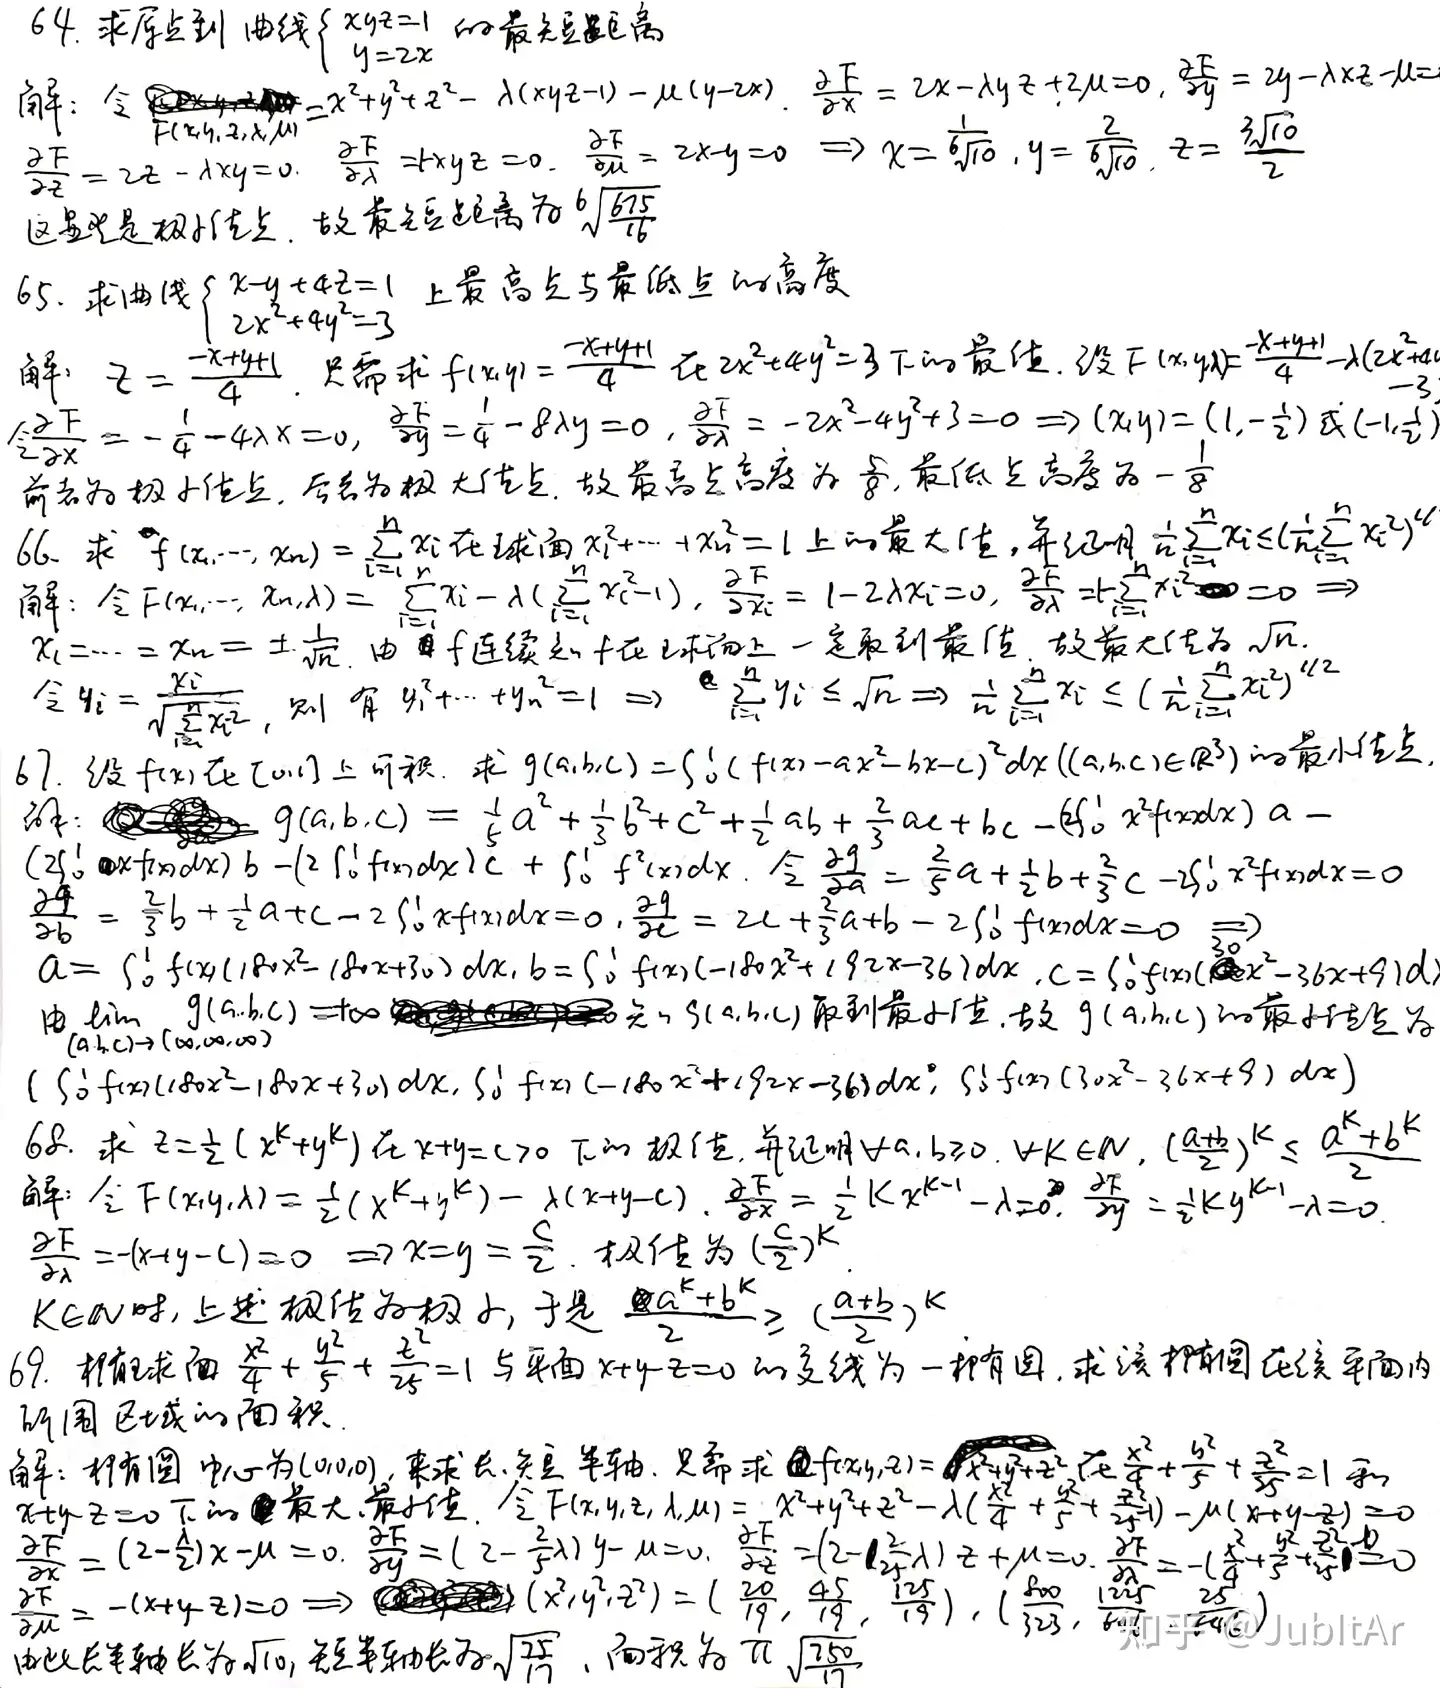 64. 求原点到曲线{xyz=1 y=2x 的最短距离
解: 令 F(x,y,z,λ,μ)=x²+y²+z²-λ(xyz-1)-μ(y-2x). ∂F/∂x=2x-λyz+2μ=0, ∂F/∂y=2y-λxz-μ=
∂F/∂z=2z-λxy=0. ∂F/∂λ=1-xyz=0. ∂F/∂μ=2x-y=0 ⇒ x=1/⁶√10, y=2/⁶√10, z=³√10/2
这显然是极小值点. 故最短距离为 ⁶√(675/16)
65. 求曲线{x-y+4z=1 2x²+4y²=3 上最高点与最低点的高度
解: z=(-x+y+1)/4. 只需求f(x,y)=(-x+y+1)/4 在2x²+4y²=3下的最值. 设F(x,y,λ)=(-x+y+1)/4-λ(2x²+4y²-3)
令∂F/∂x=-1/4-4λx=0, ∂F/∂y=1/4-8λy=0, ∂F/∂λ=-2x²-4y²+3=0 ⇒ (x,y)=(1,-1/2)或(-1,1/2)
前者为极小值点, 后者为极大值点. 故最高点高度为5/8, 最低点高度为-1/8
66. 求f(x₁,…,xₙ)=∑ᵢ₌₁ⁿxᵢ在球面x₁²+…+xₙ²=1上的最大值, 并证明 1/n ∑ᵢ₌₁ⁿxᵢ≤(1/n ∑ᵢ₌₁ⁿxᵢ²)^1/2
解: 令F(x₁,…,xₙ,λ)=∑ᵢ₌₁ⁿxᵢ-λ(∑ᵢ₌₁ⁿxᵢ²-1), ∂F/∂xᵢ=1-2λxᵢ=0, ∂F/∂λ=1-∑ᵢ₌₁ⁿxᵢ²=0 ⇒
x₁=…=xₙ=±1/√n. 由f连续知f在球面上一定取到最值. 故最大值为√n.
令yᵢ=xᵢ/√(∑ᵢ₌₁ⁿxᵢ²), 则有y₁²+…+yₙ²=1 ⇒ ∑ᵢ₌₁ⁿyᵢ≤√n ⇒ 1/n ∑ᵢ₌₁ⁿxᵢ≤(1/n ∑ᵢ₌₁ⁿxᵢ²)^1/2
67. 设f(x)在[0,1]上可积. 求g(a,b,c)=∫₀¹(f(x)-ax²-bx-c)²dx((a,b,c)∈R³)的最小值点.
解: g(a,b,c)=1/5a²+1/3b²+c²+1/2ab+2/3ac+bc-(2∫₀¹x²f(x)dx)a-
(2∫₀¹xf(x)dx)b-(2∫₀¹f(x)dx)c+∫₀¹f²(x)dx. 令∂g/∂a=2/5a+1/2b+2/3c-2∫₀¹x²f(x)dx=0
∂g/∂b=2/3b+1/2a+c-2∫₀¹xf(x)dx=0, ∂g/∂c=2c+2/3a+b-2∫₀¹f(x)dx=0 ⇒
a=∫₀¹f(x)(180x²-180x+30)dx, b=∫₀¹f(x)(-180x²+192x-36)dx, c=∫₀¹f(x)(30x²-36x+9)d
由lim(a,b,c)→(∞,∞,∞) g(a,b,c)=+∞ 知g(a,b,c)取到最小值, 故g(a,b,c)的最小值点为
(∫₀¹f(x)(180x²-180x+30)dx, ∫₀¹f(x)(-180x²+192x-36)dx, ∫₀¹f(x)(30x²-36x+9)dx)
68. 求z=1/2(x^K+y^K)在x+y=c>0下的极值, 并证明∀a,b≥0. ∀K∈N, ((a+b)/2)^K≤(a^K+b^K)/2
解: 令F(x,y,λ)=1/2(x^K+y^K)-λ(x+y-c). ∂F/∂x=1/2Kx^(K-1)-λ=0. ∂F/∂y=1/2Ky^(K-1)-λ=0.
∂F/∂λ=-(x+y-c)=0 ⇒ x=y=c/2. 极值为(c/2)^K.
K∈N时, 上述极值为极小, 于是(a^K+b^K)/2≥((a+b)/2)^K
69. 椭球面x²/4+y²/5+z²/25=1与平面x+y-z=0的交线为一椭圆, 求该椭圆在该平面内
所围区域的面积.
解: 椭圆中心为(0,0,0), 来求长、短半轴. 只需求f(x,y,z)=x²+y²+z²在x²/4+y²/5+z²/25=1和
x+y-z=0下的最大、最小值. 令F(x,y,z,λ,μ)=x²+y²+z²-λ(x²/4+y²/5+z²/25-1)-μ(x+y-z)=0
∂F/∂x=(2-λ/2)x-μ=0. ∂F/∂y=(2-2/5λ)y-μ=0. ∂F/∂z=(2-2/25λ)z+μ=0. ∂F/∂λ=-(x²/4+y²/5+z²/25-1)=0
∂F/∂μ=-(x+y-z)=0 ⇒ (x²,y²,z²)=(20/19, 45/19, 125/19), (800/323, 1225/646, 25/646)
由此长半轴长为√10, 短半轴长为√(75/17), 面积为π√(750/17)
知乎 @JubItAr